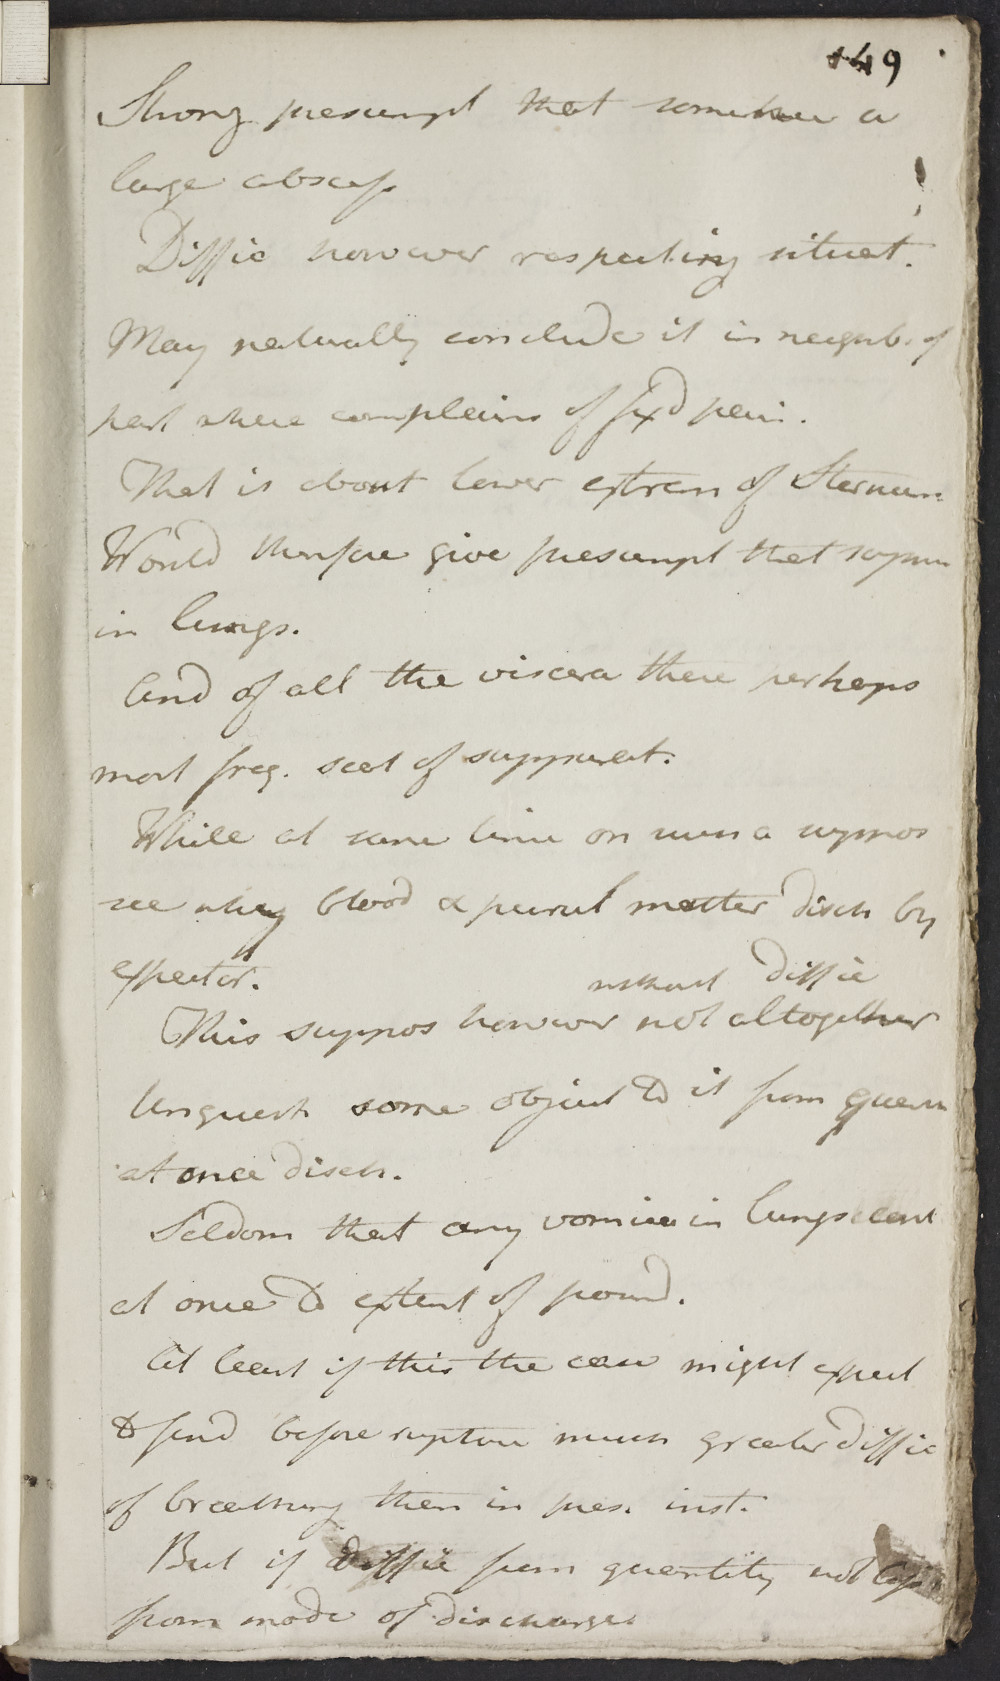 149
Strong presumpt that somewhere a
large abscess
Diffic however respecting situat.
May naturally conclude it in neighb. of
part where complains of fixd pain.
That is about lower extrem of Sternum
Would therefore give presumpt that
in lungs.
And of all the viscera these perhaps
most freq. seat of suppurat.
While at same time on such a suppos
see why blood & purul matter disch by
expector.
without diffic
This suppos however not altogether
Unquest some object to it from quant
at once disch.
Seldom that any vomica in lungs
at once to extent of pound.
At least if this the case might expect
to find before rupture much greater diffic
of breathing than in pres. inst.
But if diffic from quantity not less
from mode of discharge